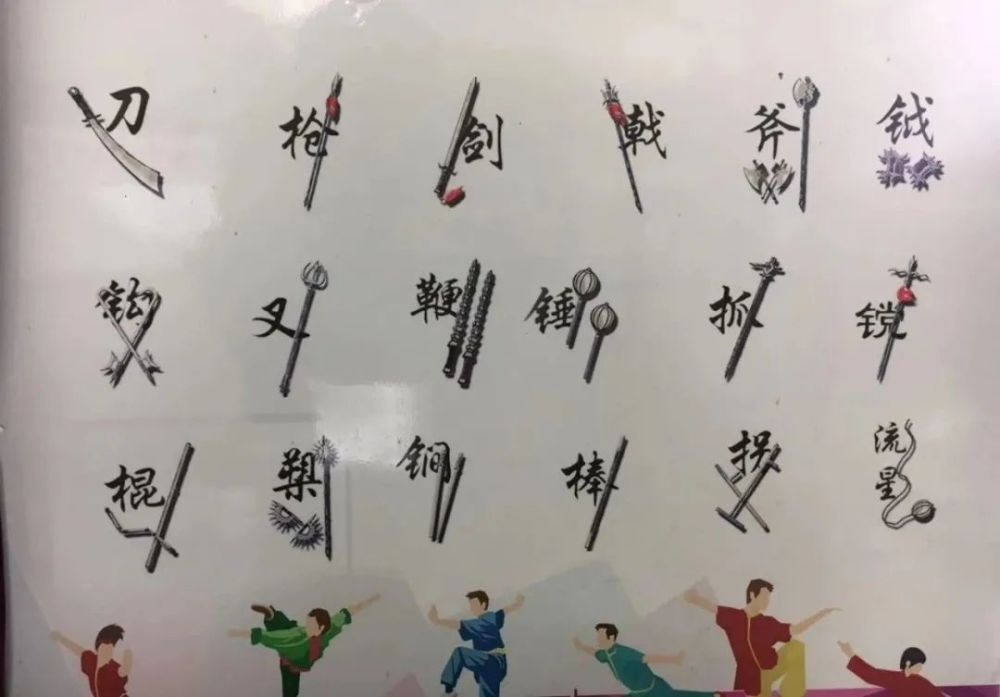 刀 枪 剑 戟 斧 钺
钩 叉 鞭 锤 抓 镋
棍 槊 锏 棒 拐 流星